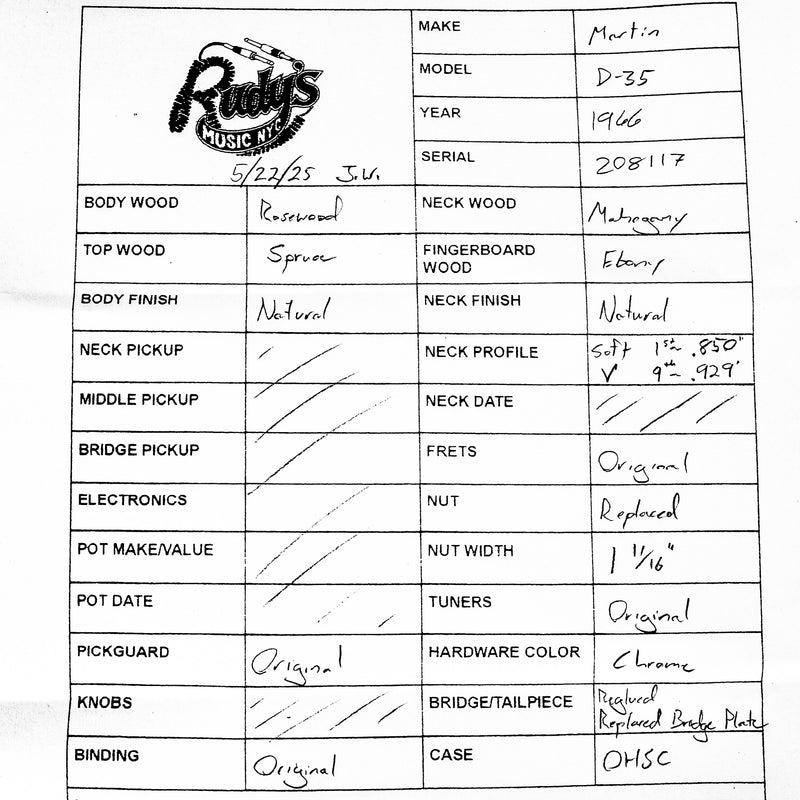 Rudy's
MUSIC NYC
5/22/25 J.W.
MAKE Martin
MODEL D-35
YEAR 1966
SERIAL 208117
BODY WOOD Rosewood NECK WOOD Mahogany
TOP WOOD Spruce FINGERBOARD WOOD Ebony
BODY FINISH Natural NECK FINISH Natural
NECK PICKUP NECK PROFILE Soft V 1st ~ .850" 9th ~ .929"
MIDDLE PICKUP NECK DATE
BRIDGE PICKUP FRETS Original
ELECTRONICS NUT Replaced
POT MAKE/VALUE NUT WIDTH 1 11/16"
POT DATE TUNERS Original
PICKGUARD Original HARDWARE COLOR Chrome
KNOBS BRIDGE/TAILPIECE Reglued
Replaced Bridge Plate
BINDING Original CASE OHSC